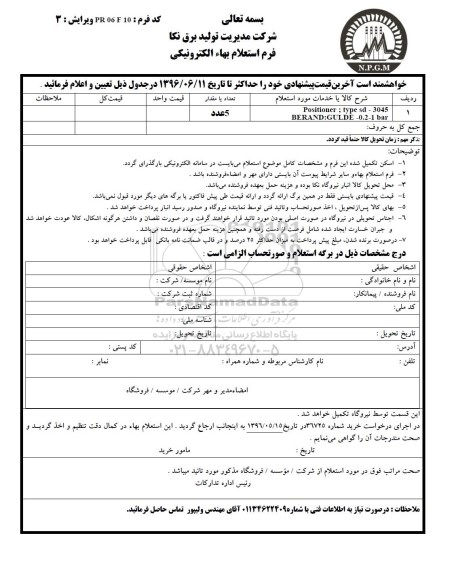 بسمه تعالی
کد فرم : PR 06 F 10 ویرایش : ۳
شرکت مدیریت تولید برق نکا
فرم استعلام بهاء الکترونیکی
N.P.G.M
خواهشمند است آخرین قیمت پیشنهادی خود را حداکثر تا تاریخ ۱۳۹۶/۰۶/۱۱ در جدول ذیل تعیین و اعلام فرمائید .
ردیف شرح کالا یا خدمات مورد استعلام تعداد یا مقدار قیمت واحد قیمت کل ملاحظات
۱ Positioner : type sd - 3045 5عدد
BERAND:GULDE -0.2-1 bar
جمع کل به حروف:
تذکر مهم : زمان تحویل کالا حتماً قید گردد.
توضیحات:
۱- اسکن تکمیل شده این فرم و مشخصات کامل موضوع استعلام می‌بایست در سامانه الکترونیکی بارگذرای گردد.
۲- فرم استعلام بهاءو سایر شرایط پیوست آن بایستی دارای مهر و امضاءفروشنده باشد .
۳- محل تحویل کالا انبار نیروگاه نکا بوده و هزینه حمل بعهده فروشنده می‌باشد .
۴- قیمت پیشنهادی بایستی فقط در همین برگ ارائه گردد و ارائه قیمت طی پیش فاکتور یا برگه های دیگر مورد قبول نمی‌باشد.
۵- بهای کالا پس‌ازتحویل ، اخذ صورتحساب وتائید فنی توسط نماینده نیروگاه و صدور رسید انبار پرداخت خواهد شد .
۶- اجناس تحویلی در نیروگاه در صورت اصلی بودن مورد تائید قرار خواهند گرفت و در صورت نقصان و داشتن هرگونه اشکال، کالا عودت خواهد شد
و جبران خسارت ایجاد شده شامل فرصت از دست رفته و همچنین هزینه حمل بعهده فروشنده می‌باشد .
۷- درصورت برنده شدن، مبلغ پیش پرداخت به میزان حداکثر ۲۵ درصد و در قالب ضمانت نامه بانکی قابل پرداخت خواهد بود .
درج مشخصات ذیل در برگه استعلام و صورتحساب الزامی است :
اشخاص حقیقی اشخاص حقوقی
نام و نام خانوادگی : نام موسسه/ شرکت :
نام فروشنده / پیمانکار: شماره ثبت شرکت :
کد ملی: کد اقتصادی :
شناسه ملی:
تاریخ تحویل : تاریخ تحویل:
آدرس: کد پستی :
تلفن : نام کارشناس مربوطه و شماره همراه : نمابر :
امضاءمدیر و مهر شرکت / موسسه / فروشگاه
ParsNamadData
پایگاه اطلاع رسانی
۰۲۱-۸۸۳۴۹۶۷۰-۵
این قسمت توسط نیروگاه تکمیل خواهد شد .
در اجرای درخواست خرید شماره ۳۶۷۲۵در تاریخ۱۳۹۶/۰۵/۱۵ به اینجانب ارجاع گردید . این استعلام بهاء در کمال دقت تنظیم و اخذ گردیــد و
صحت مندرجات آن را گواهی می‌نمایم .
تاریخ : مامور خرید
صحت مراتب فوق در مورد استعلام از شرکت / مؤسسه / فروشگاه مذکور مورد تائید میباشد .
رئیس اداره تدارکات
ملاحظات : درصورت نیاز به اطلاعات فنی با شماره۰۱۱۳۴۶۲۲۴۰۹ آقای مهندس ولیپور تماس حاصل فرمائید.